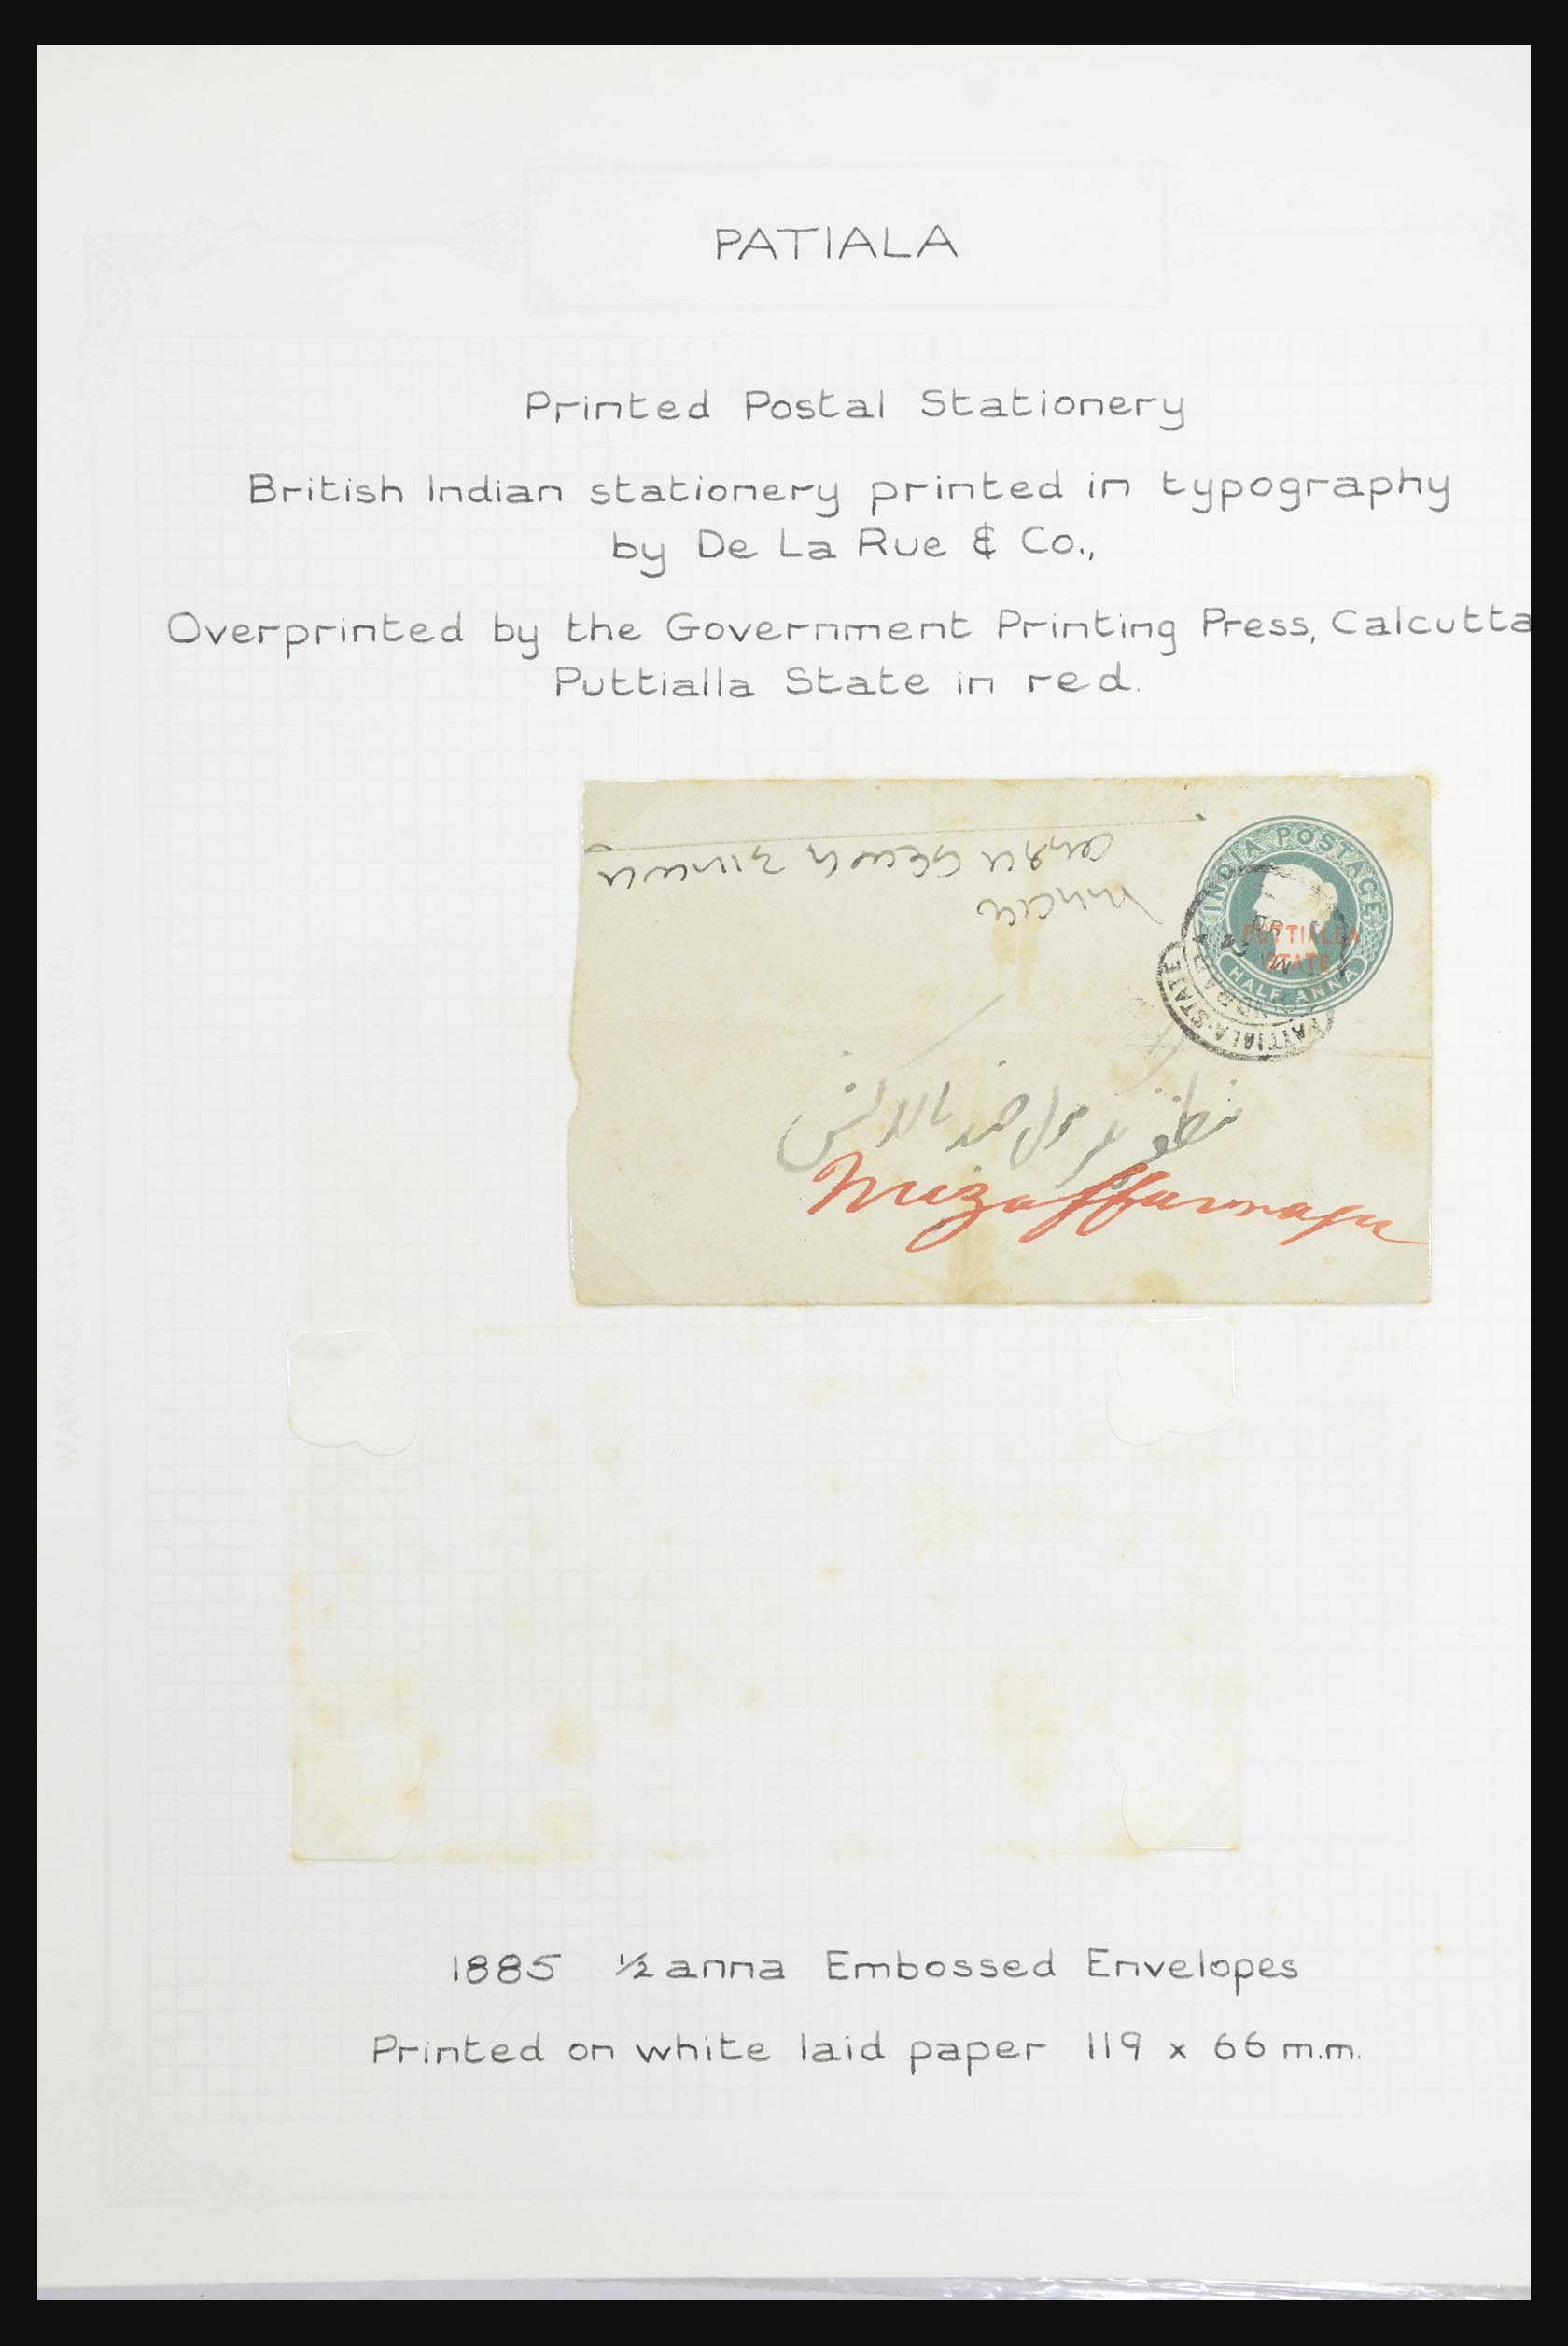 PATIALA
Printed Postal Stationery
British Indian stationery printed in typography
by De La Rue & Co.,
Overprinted by the Government Printing Press, Calcutta
Puttialla State in red.
INDIA POSTAGE
PUTTIALLA
STATE
HALF ANNA
PATIALA·STATE
1885 ½ anna Embossed Envelopes
Printed on white laid paper 119 x 66 m.m.
WARWICK STAMP ALBUM